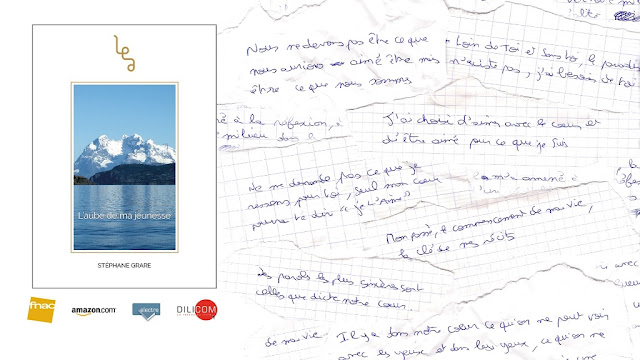 L'aube de ma jeunesse
STÉPHANE GRARE
fnac
amazon.com
electre
DILICOM
Nous ne devons pas être ce que
nous aurions aimé être mais
être ce que nous sommes
Loin de toi et sans toi, le paradis
n'existe pas, j'ai besoin de toi
à la réflexion,
milieu dans
J'ai choisi d'aimer avec le cœur et
d'être aimé pour ce que je suis
Ne me demande pas ce que je
ressens pour toi, seul mon cœur
pourra te dire "je t'aime"
m'a amené
Mon passé, le commencement de ma vie,
la clé de mes récits
Les paroles les plus sincères sont
celles que dicte notre cœur
avec
de ma vie.
Il y a dans notre cœur ce qu'on ne peut voir
avec les yeux et dans les yeux, ce qu'on ne